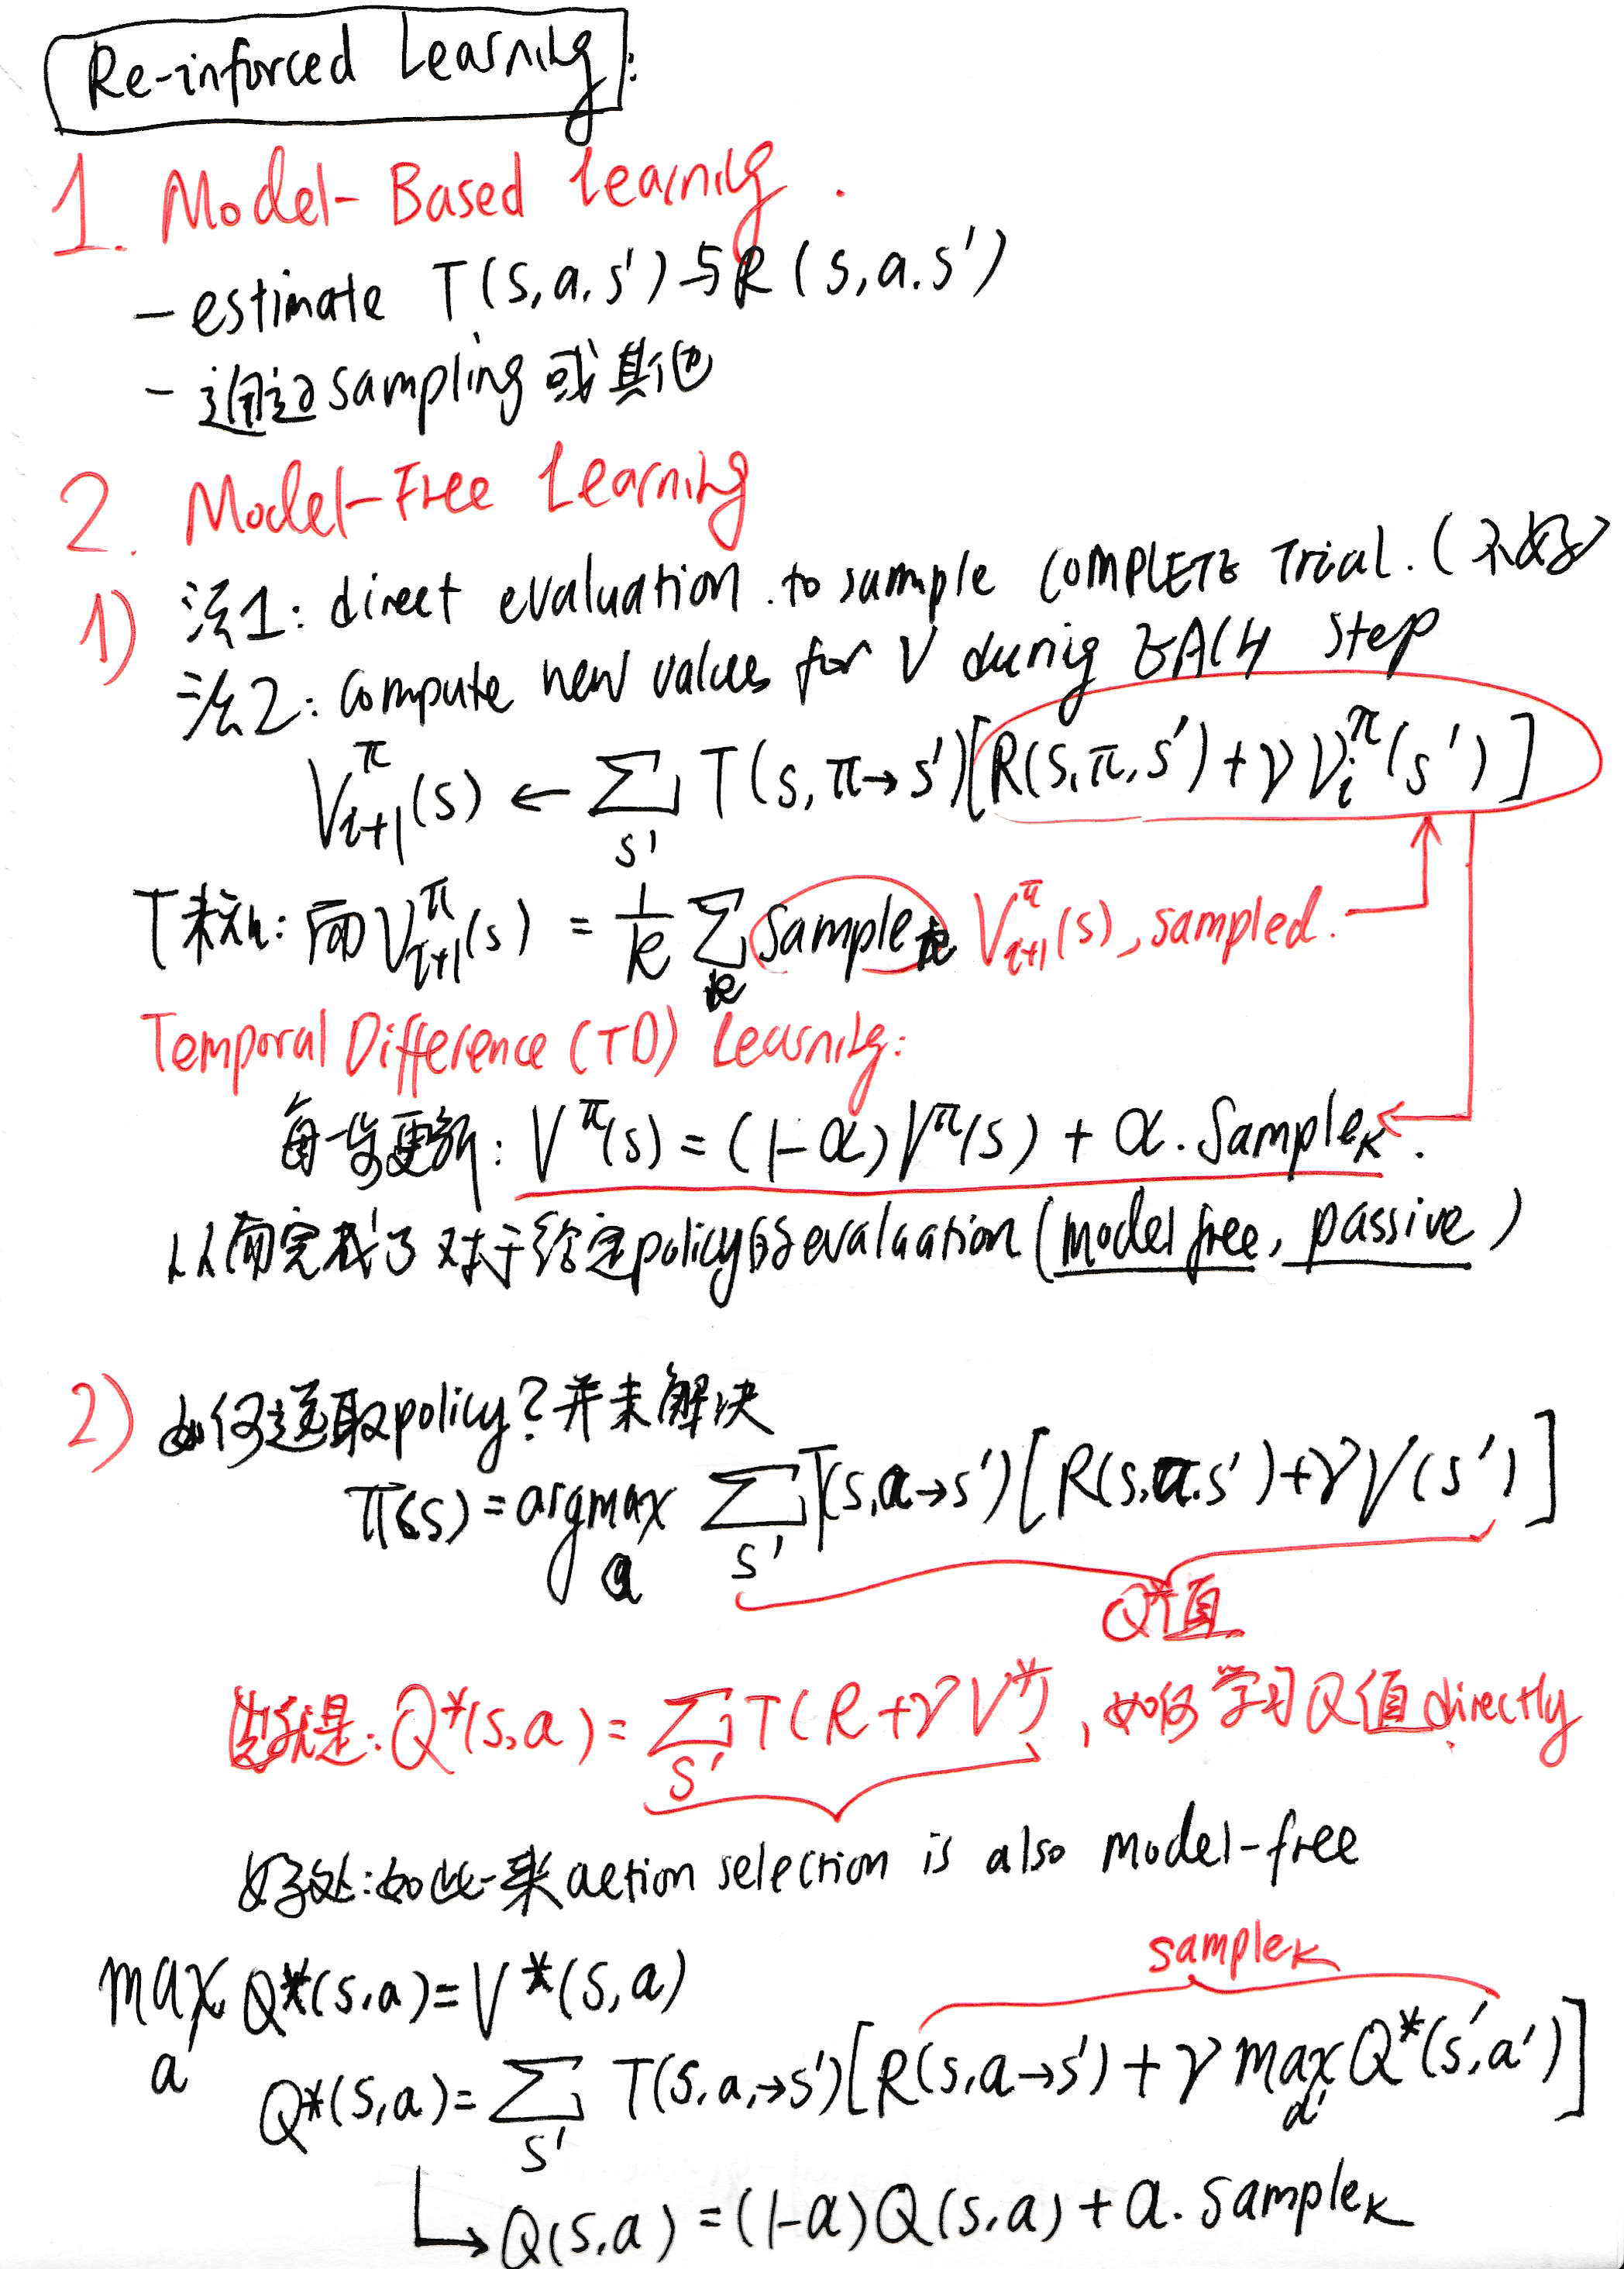 Re-inforced Learning:
1. Model-Based Learning.
- estimate T(s,a,s')与R(s,a,s')
- 通过sampling或其他
2. Model-Free Learning
1) 法1: direct evaluation. to sample COMPLETE Trial.(不好)
法2: compute new values for V during EACH step
V^π_{i+1}(s) ← Σ_{s'} T(s,π→s')[R(s,π,s')+γV_i^π(s')]
T未知: 而V^π_{i+1}(s) = 1/k Σ_k Sample_k V^π_{i+1}(s), sampled.
Temporal Difference (TD) Learning:
每一步更新: V^π(s) = (1-α)V^π(s) + α. Sample_k.
从而完成了对于给定policy的evaluation(model free, passive)
2) 如何选取policy?并未解决
π(s) = argmax_a Σ_{s'} T(s,a→s')[R(s,a,s')+γV(s')]
Q*值
也就是: Q*(s,a) = Σ_{s'} T(R+γV*), 如何学习Q值directly
好处:如此一来action selection is also model-free
sample_k
max_a Q*(s,a)=V*(s,a)
Q*(s,a)= Σ_{s'} T(s,a,→s')[R(s,a→s') + γ max_{a'} Q*(s',a')]
↳ Q(s,a) = (1-α)Q(s,a) + α. sample_k